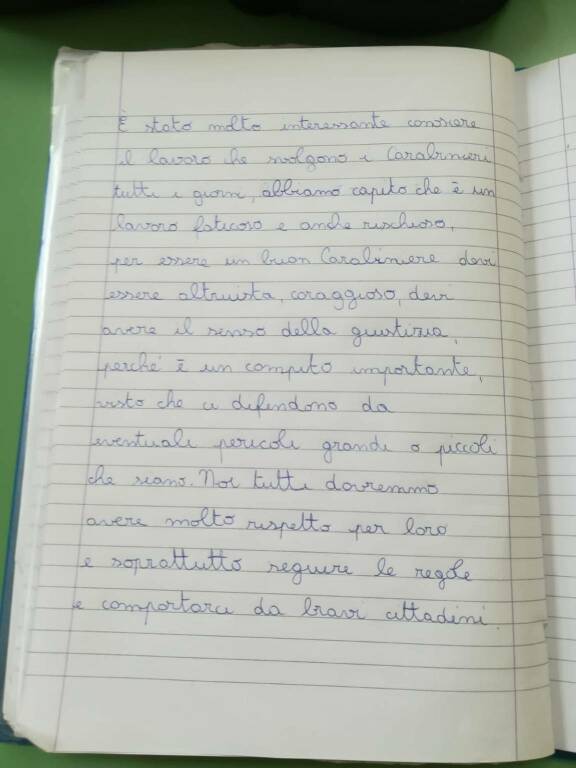 È stato molto interessante conoscere
il lavoro che svolgono i Carabinieri
tutti i giorni, abbiamo capito che è un
lavoro faticoso e anche rischioso,
per essere un buon Carabiniere devi
essere altruista, coraggioso, devi
avere il senso della giustizia,
perché è un compito importante,
visto che ci difendono da
eventuali pericoli grandi o piccoli
che siano. Noi tutti dovremmo
avere molto rispetto per loro
e soprattutto seguire le regole
e comportarci da bravi cittadini.